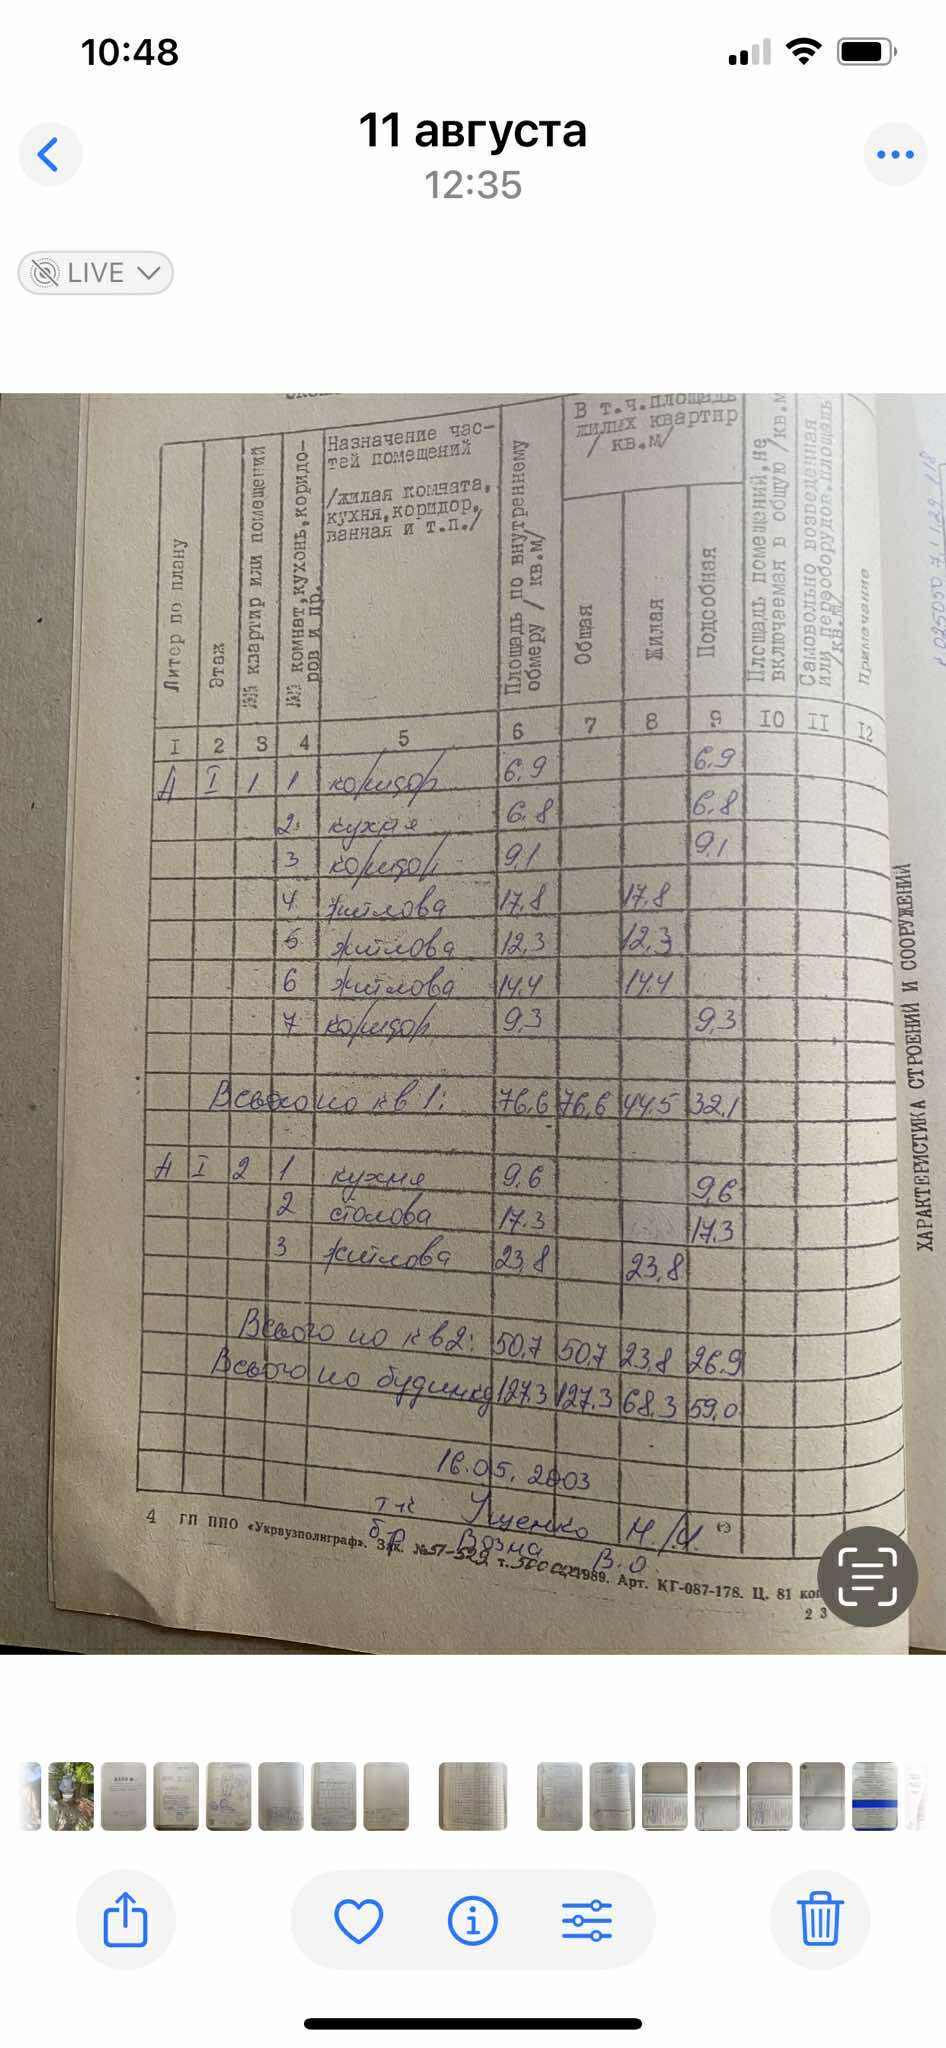 10:48
11 августа
12:35
LIVE
Литер по плану
Этаж
№№ квартир или помещений
№№ комнат, кухонь, коридо-
ров и пр.
Назначение час-
тей помещений
/жилая комната,
кухня, коридор,
ванная и т.п./
Площадь по внутреннему
обмеру / кв.м/
В т.ч.площадь
жилых квартир
/ кв.м/
Общая
Жилая
Подсобная
Площадь помещений, не
включаемая в общую /кв.м
Самовольно возведенная
или переоборудов.площадь
/кв.м/
Примечание
I 2 3 4 5 6 7 8 9 I0 II I2
А I 1 1 коридор 6.9 6.9
2 кухня 6.8 6.8
3 коридор 9,1 9,1
4 житлова 17,8 17,8
5 житлова 12,3 12,3
6 житлова 14,4 14,4
7 коридор 9,3 9,3
Всього по кв 1: 76,6 76,6 44.5 32,1
А I 2 1 кухня 9.6 9,6
2 столова 17.3 17.3
3 житлова 23,8 23,8
Всього по кв2: 50,7 50,7 23,8 26.9
Всього по будинку 127.3 127.3 68.3 59.0
16.05.2003
т-к Ященко
бр В.О.
4 ГП ППО «Укрвузполиграф». Зак. т. 1989. Арт. КГ-087-178. Ц. 81 коп
2 3
ХАРАКТЕРИСТИКА СТРОЕНИЙ И СООРУЖЕНИЙ